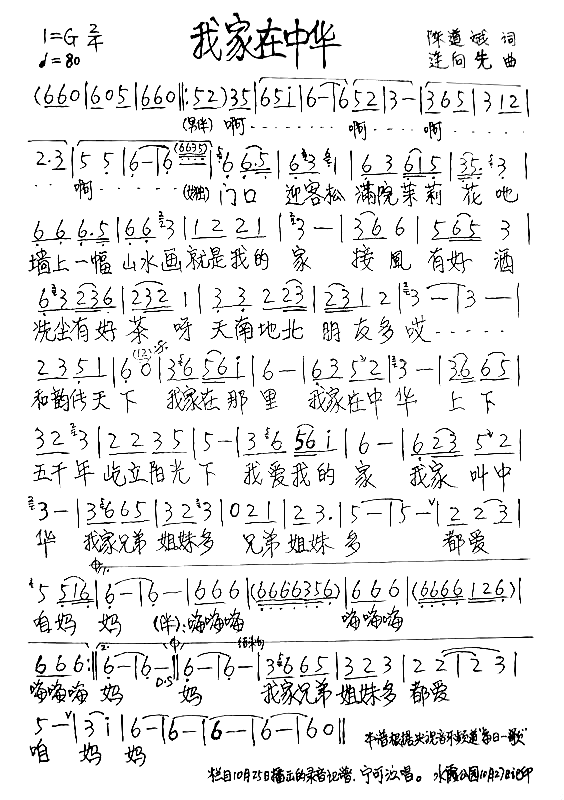 1=G 2/4 我家在中华 陈道斌 词
♩=80 连向先 曲
(660|605|660‖:52)35|651|6-|652|3-|365|312|
(男伴) 啊 啊 啊
2·3|55|6-|6(6635)|66·5|631|63615|35·3|
啊 门口 迎客松 满院茉莉 花吔
666·5|663|1221|3-|366|5653|
墙上一幅山水画就是我的 家 接風 有好 酒
63236|2321|3323|2312|3-|3-|
洗尘有好茶 呀 天南地北 朋友多哎
2351|60|36561|6-|6352|3-|3665|
和韵传天下 我家在那里 我家在中 华 上下
323|2235|5-|36561|6-|62352|
五千年屹立阳光下 我爱我的 家 我家 叫中
3-|3665|323|021|23·|5-|5-|223|
华 我家兄弟 姐妹多 兄弟 姐妹 多 都爱
5516|6-|6-|666|(6666356|666|(6666126)|
咱妈 妈 (伴):嗨嗨嗨 嗨嗨嗨
666:‖6-|6-‖6-|6-|3665|323|22|23|
嗨嗨嗨 妈 D.S 妈 我家兄弟 姐妹多 都爱
5-|3i|6-|6-|6-|6-|60‖
咱 妈 妈 本谱根据央视音乐频道"每日一歌"
栏目10月25日播出的录音记谱.宁可泣唱。 水霞公园10月27日记印